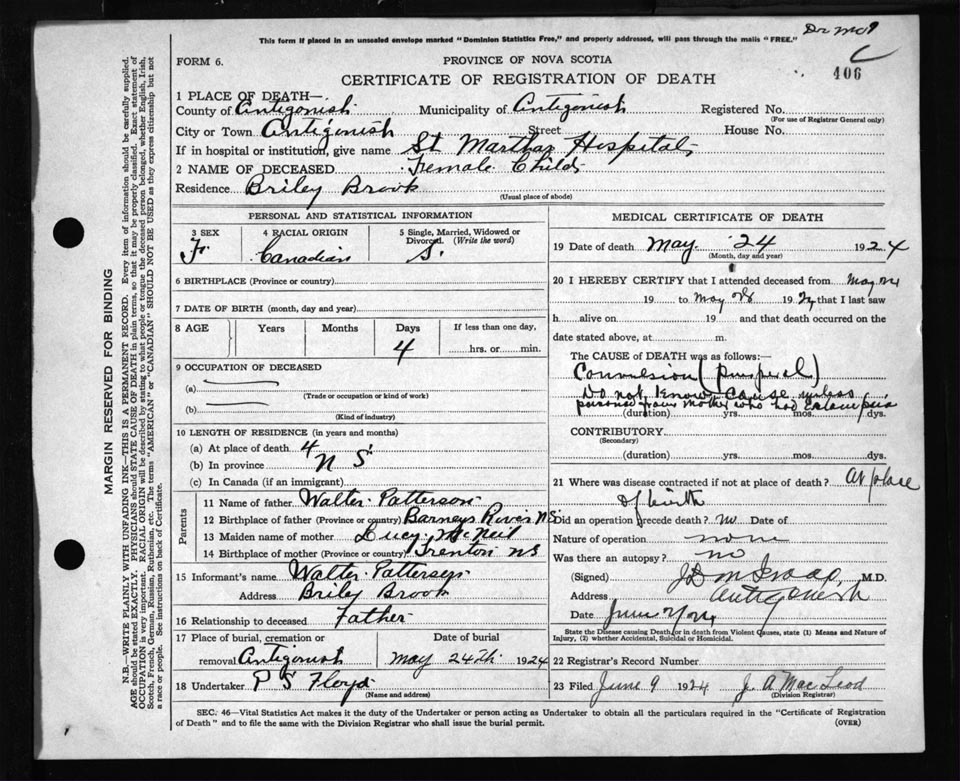 Dr Mc
This form if placed in an unsealed envelope marked "Dominion Statistics Free," and properly addressed, will pass through the mails "FREE."
C
406
FORM 6.
PROVINCE OF NOVA SCOTIA
CERTIFICATE OF REGISTRATION OF DEATH
1 PLACE OF DEATH—
County of Antigonish Municipality of Antigonish Registered No.
(For use of Registrar General only)
City or Town Antigonish Street House No.
If in hospital or institution, give name St Marthas Hospital
2 NAME OF DECEASED Female Child
Residence Briley Brook
(Usual place of abode)
PERSONAL AND STATISTICAL INFORMATION
3 SEX 4 RACIAL ORIGIN 5 Single, Married, Widowed or Divorced. (Write the word)
F Canadian S.
6 BIRTHPLACE (Province or country)
7 DATE OF BIRTH (month, day and year)
8 AGE Years Months Days If less than one day,
4 hrs. or min.
9 OCCUPATION OF DECEASED
(a)
(Trade or occupation or kind of work)
(b)
(Kind of industry)
10 LENGTH OF RESIDENCE (in years and months)
(a) At place of death 4
(b) In province N S
(c) In Canada (if an immigrant)
Parents
11 Name of father Walter Patterson
12 Birthplace of father (Province or country) Barneys River NS
13 Maiden name of mother Lucy McNeil
14 Birthplace of mother (Province or country) Trenton NS
15 Informant's name Walter Patterson
Address Briley Brook
16 Relationship to deceased Father
17 Place of burial, cremation or removal Antigonish
Date of burial
May 24th 1924
18 Undertaker P S Floyd
(Name and address)
MEDICAL CERTIFICATE OF DEATH
19 Date of death May 24 1924
(Month, day and year)
20 I HEREBY CERTIFY that I attended deceased from May 24
19 to May 28 1924 that I last saw
h alive on 19 and that death occurred on the
date stated above, at m.
The CAUSE of DEATH was as follows:—
Convulsion
Do not know cause unless
poisoned from mother who had eclampsia
(duration) yrs. mos. dys.
CONTRIBUTORY
(Secondary)
(duration) yrs. mos. dys.
21 Where was disease contracted if not at place of death? At place
of birth
Did an operation precede death? No Date of
Nature of operation none
Was there an autopsy? no
(Signed) M.D.
Address Antigonish
Date June
State the Disease causing Death, or in death from Violent Causes, state (1) Means and Nature of
Injury, (2) whether Accidental, Suicidal or Homicidal.
22 Registrar's Record Number
23 Filed June 9 1924 J. A MacLeod
(Division Registrar)
SEC. 46—Vital Statistics Act makes it the duty of the Undertaker or person acting as Undertaker to obtain all the particulars required in the "Certificate of Registration
of Death" and to file the same with the Division Registrar who shall issue the burial permit.
(OVER)
MARGIN RESERVED FOR BINDING
N.B.—WRITE PLAINLY WITH UNFADING INK—THIS IS A PERMANENT RECORD. Every item of information should be carefully supplied.
AGE should be stated EXACTLY. PHYSICIANS should STATE CAUSE OF DEATH in plain terms, so that it may be properly classified. Exact statement of
OCCUPATION is very important. RACIAL ORIGIN will be described by stating to what people or tongue the deceased person belonged, whether English, Irish,
Scotch, French, German, Russian, Ruthenian, etc. The terms "AMERICAN" or "CANADIAN" SHOULD NOT BE USED as they express citizenship but not
a race or people. See instructions on back of Certificate.